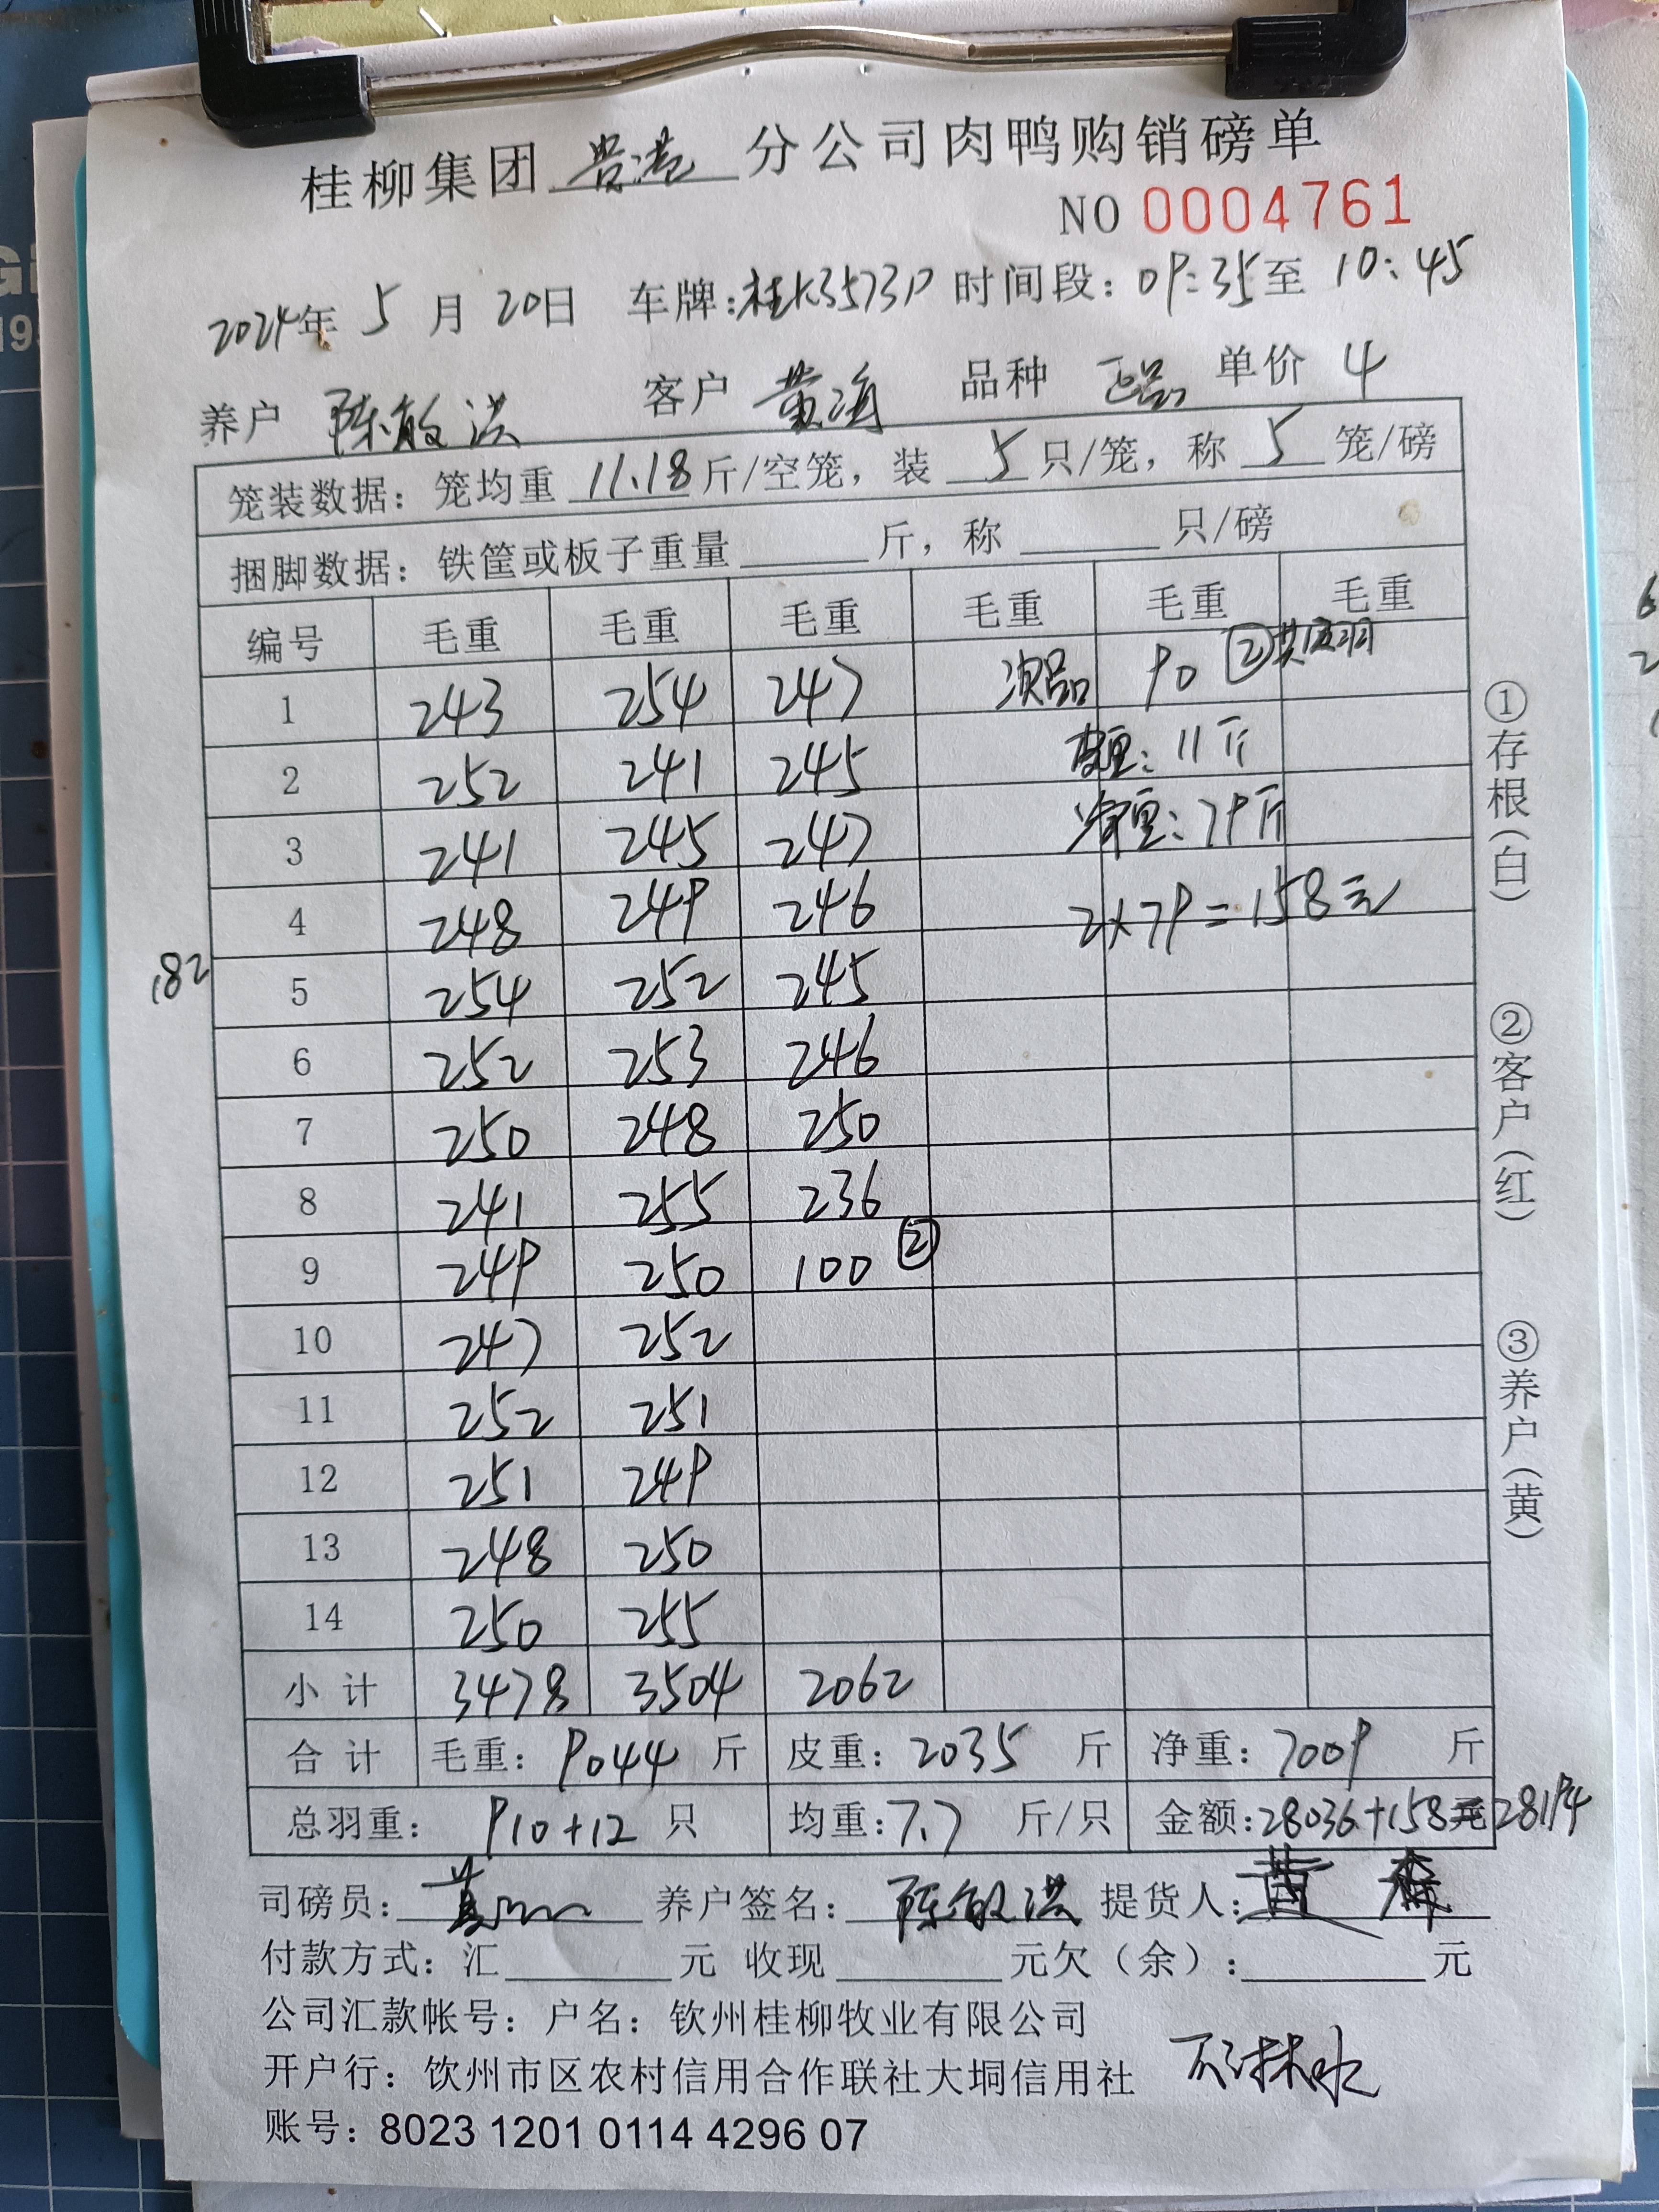 桂柳集团 贵港 分公司肉鸭购销磅单
NO 0004761
2024年 5 月 20日 车牌:桂K3573P 时间段: 09:35至 10:45
养户 陈敏洪 客户 黄海 品种 正品 单价 4
笼装数据: 笼均重 11.18 斤/空笼, 装 5 只/笼, 称 5 笼/磅
捆脚数据: 铁筐或板子重量 斤, 称 只/磅
编号 毛重 毛重 毛重 毛重 毛重 毛重
1 243 254 247 次品 90 ②共12羽
2 252 241 245 皮重: 11斤
3 241 245 247 净重: 79斤
4 248 249 246 2x79=158元
182
5 254 252 245
6 252 253 246
7 250 248 250
8 241 255 236
9 249 250 100 ②
10 247 252
11 252 251
12 251 249
13 248 250
14 250 255
小计 3478 3504 2062
合计 毛重: 9044 斤 皮重: 2035 斤 净重: 7009 斤
总羽重: 910+12 只 均重: 7.7 斤/只 金额: 28036+158元 28194
司磅员: 养户签名: 陈敏洪 提货人: 黄森
付款方式: 汇 元 收现 元欠(余): 元
公司汇款帐号: 户名: 钦州桂柳牧业有限公司
开户行: 钦州市区农村信用合作联社大垌信用社
账号: 8023 1201 0114 4296 07
①存根(白)
②客户(红)
③养户(黄)